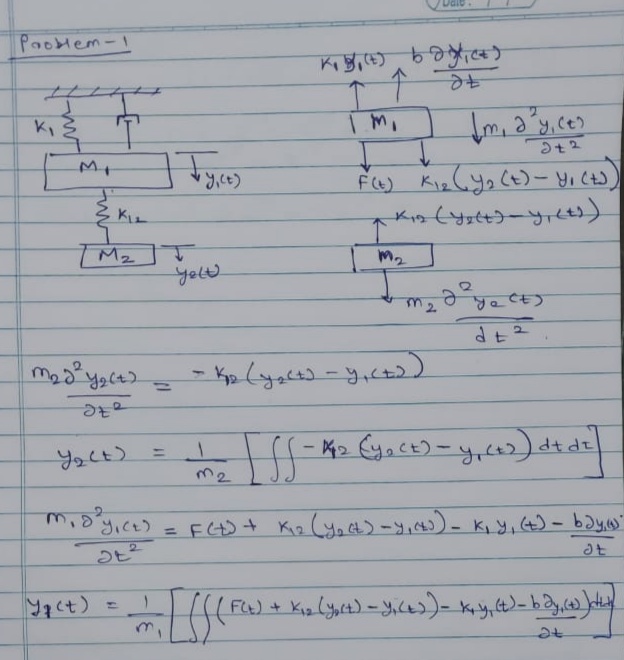 Date: / /
Problem-1
K₁ y₁(t) b ∂y₁(t)/∂t
K₁
M₁
y₁(t)
K₁₂
M₂
y₂(t)
m₁
m₁ ∂²y₁(t)/∂t²
F(t) K₁₂(y₂(t) - y₁(t))
K₁₂(y₂(t) - y₁(t))
m₂
m₂ ∂²y₂(t)/dt².
m₂∂²y₂(t)/∂t² = -K₁₂(y₂(t) - y₁(t))
y₂(t) = 1/m₂ [∫∫ -K₁₂(y₂(t) - y₁(t)) dt dt]
m₁∂²y₁(t)/∂t² = F(t) + K₁₂(y₂(t) - y₁(t)) - K₁ y₁(t) - b∂y₁(t)/∂t
y₁(t) = 1/m₁ [∫∫(F(t) + K₁₂(y₂(t) - y₁(t)) - K₁y₁(t) - b∂y₁(t)/∂t)dt dt]